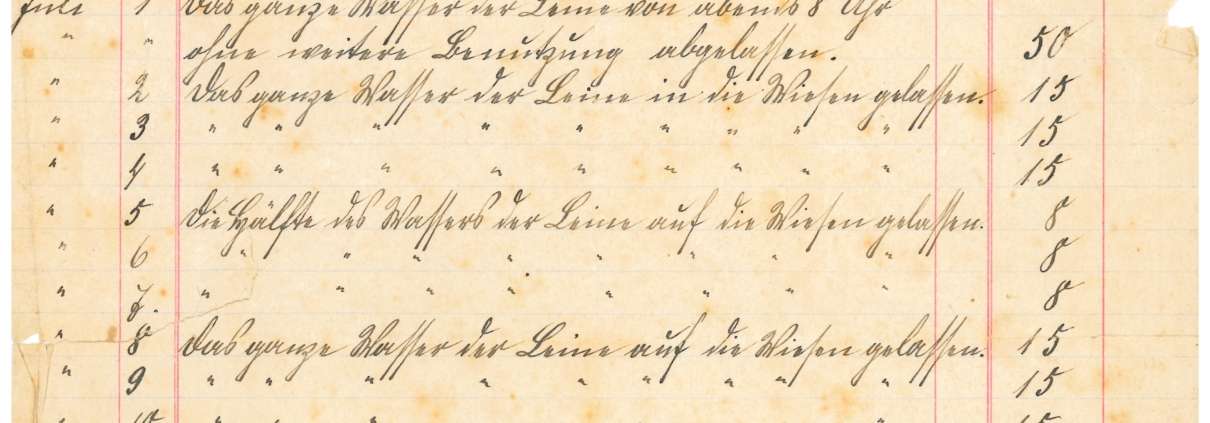 Juli 1 Das ganze Wasser der Leine von abends 8 Uhr
" " ohne weitere Benutzung abgelassen. 50
" 2 Das ganze Wasser der Leine in die Wiesen gelassen. 15
" 3 " " " " " " " " " 15
" 4 " " " " " " " " " 15
" 5 Die Hälfte des Wassers der Leine auf die Wiesen gelassen. 8
" 6 " " " " " " " " " 8
" 7. " " " " " " " " 8
" 8 Das ganze Wasser der Leine auf die Wiesen gelassen. 15
" 9 " " " " " " " " " 15
" 10 " " " " 15